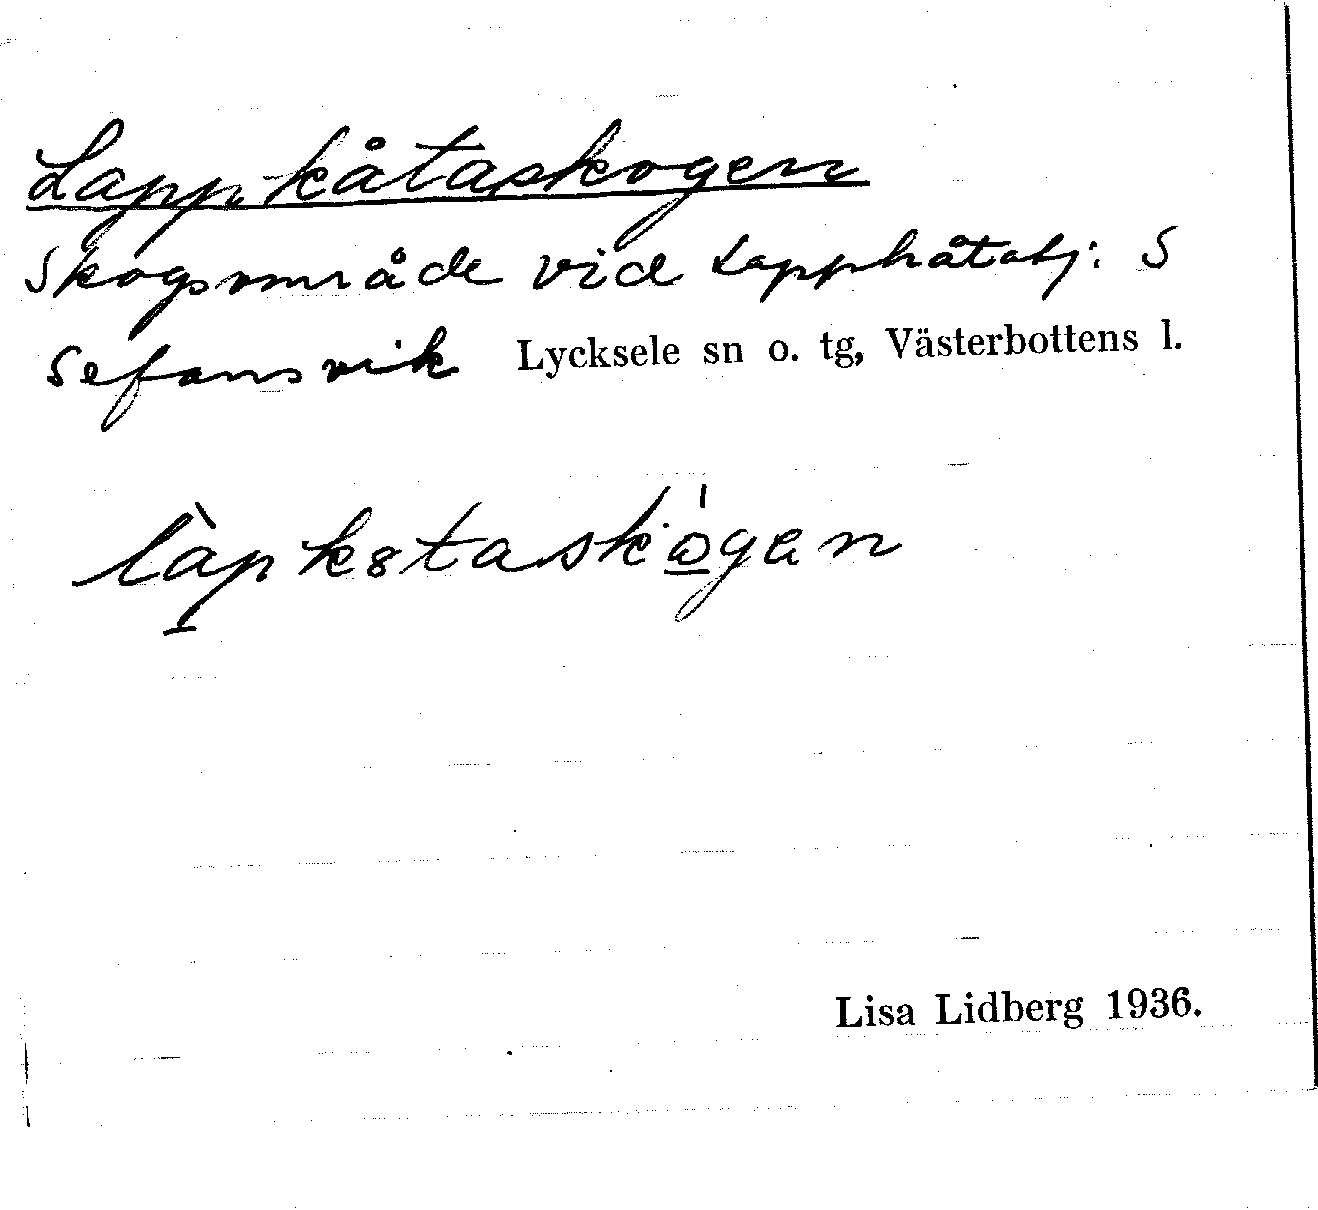 Lappkåtaskogen
Skogsområde vid Lappkåtabj: S
Sefansvik Lycksele sn o. tg, Västerbottens l.
làpk8taskógen
Lisa Lidberg 1936.